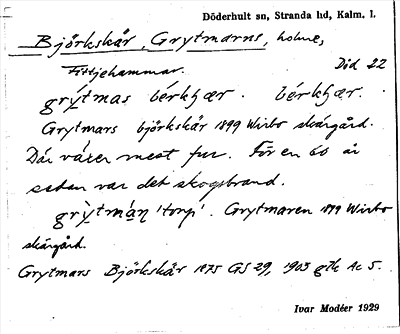 Döderhult sn, Stranda hd, Kalm. l.
Björkskär, Grytmarns, holme,
Fittjehammar. Did 22
grýtmas bérkʃær. bérkʃær.
Grytmars björkskär 1899 Wirbo skärgård.
Där växer mest fur. För en 60 år
sedan var det skogsbrand.
'torp'. Grytmaren 1899 Wirbo
skärgård.
Grytmars Björkskär 1875 GS 29, 1903 gtk Ac 5.
Ivar Modéer 1929